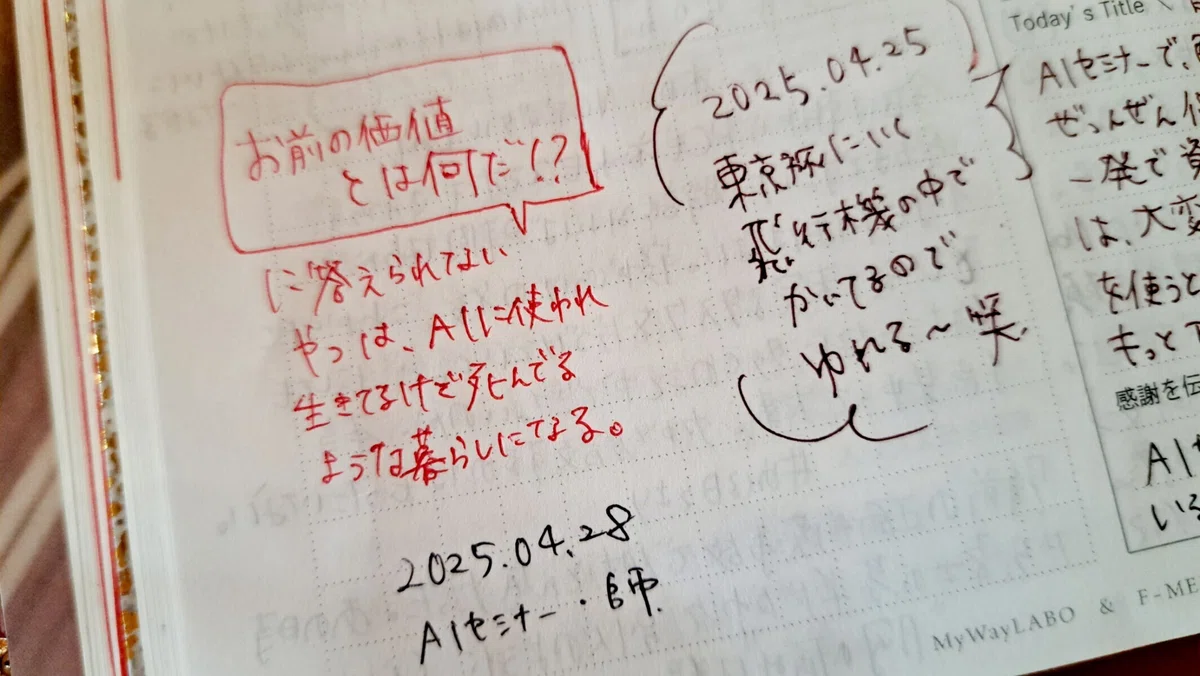 お前の価値
とは何だ!?
に答えられてない
やつは、AIに使われ
生きてるけで死んでる
ような暮らしになる。
2025.04.28
AIセミナー・師
2025.04.25
東京旅にいく
飛行機の中で
かいてるので
ゆれる〜笑
Today's Title
AIセミナーで、
ぜんぜん
一発で
は、大変
を使うと
もっと
感謝を伝
AI
いる
MyWayLABO & F-ME